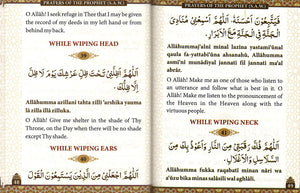 PRAYERS OF THE PROPHET (S.A.W.)
O Allāh! I seek refuge in Thee that I may be given
the record of my deeds in my left hand or from
behind my back.
WHILE WIPING HEAD
39
اَللّٰهُمَّ اَظِلَّنِيْ تَحْتَ ظِلِّ عَرْشِكَ يَوْمَ لَا
ظِلَّ اِلَّا ظِلُّ عَرْشِكَ
Allāhumma azillanī tahta zilli 'arshika yauma
lā zilla illā zillu 'arshik
O Allāh! Give me shelter in the shade of Thy
Throne, on the Day when there will be no shade
except Thy Shade.
WHILE WIPING EARS
40
اَللّٰهُمَّ اجْعَلْنِيْ مِنَ الَّذِيْنَ يَسْتَمِعُوْنَ الْقَوْلَ
PRAYERS OF THE PROPHET (S.A.W.)
فَيَتَّبِعُوْنَ اَحْسَنَهٗ
الْجَنَّةِ مَعَ الْاَبْرَارِ
Allāhumma'j'alnī minal lazīna yastami'ūnal
qaula fa-yattabi'ūna ahsanah, Allāhumma
asmi'nī munādiyal jannati fil jannati ma'al
abrār
O Allāh! Make me as one of those who listen to
utterance and follow what is best in it. O Allāh!
Make me listen to the pronouncement of
the Heaven in the Heaven along with the
virtuous people.
WHILE WIPING NECK
41
اَللّٰهُمَّ فُكَّ رَقَبَتِيْ مِنَ النَّارِ وَاَعُوْذُ بِكَ مِنَ
السَّلَاسِلِ وَالْاَغْلَالِ
Allāhumma fukka raqabatī minan nāri wa
a'ūzu bika minas salāsili wal aghlāl